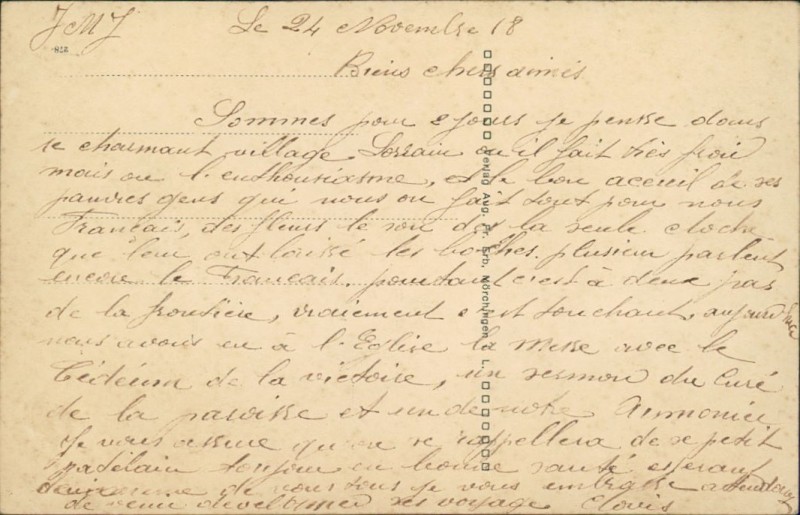 JMJ Le 24 Novembre 18
828
Biens chers aimés
Sommes pour 2 jours je pense dans
se charmant village Lorrain ou il fait très froid
mais ou l'enthousiasme, et le bon acceuil de ses
pauvres gens qui nous on fait tout pour nous
Francais, des fleurs le son de la seule cloche
que leur ont laissé les boches. plusieur parlent
encore le Francais. pourtant c'est à deux pas
de la frontière, vraiement c'est touchant, aujourd'hui
nous avons eu à l'Eglise la Messe avec le
Tédéum de la victoire, un sermon du Curé
de la paroisse et un de notre Aumonier
Je vous assure qu'on se rappellera de se petit
patelain toujour en bonne santé esperant
de même de vous tous je vous embrasse attendant
de venir ses voyage Clovis
Verlag Aug. Fr. Erb, Mörchingen i. L.